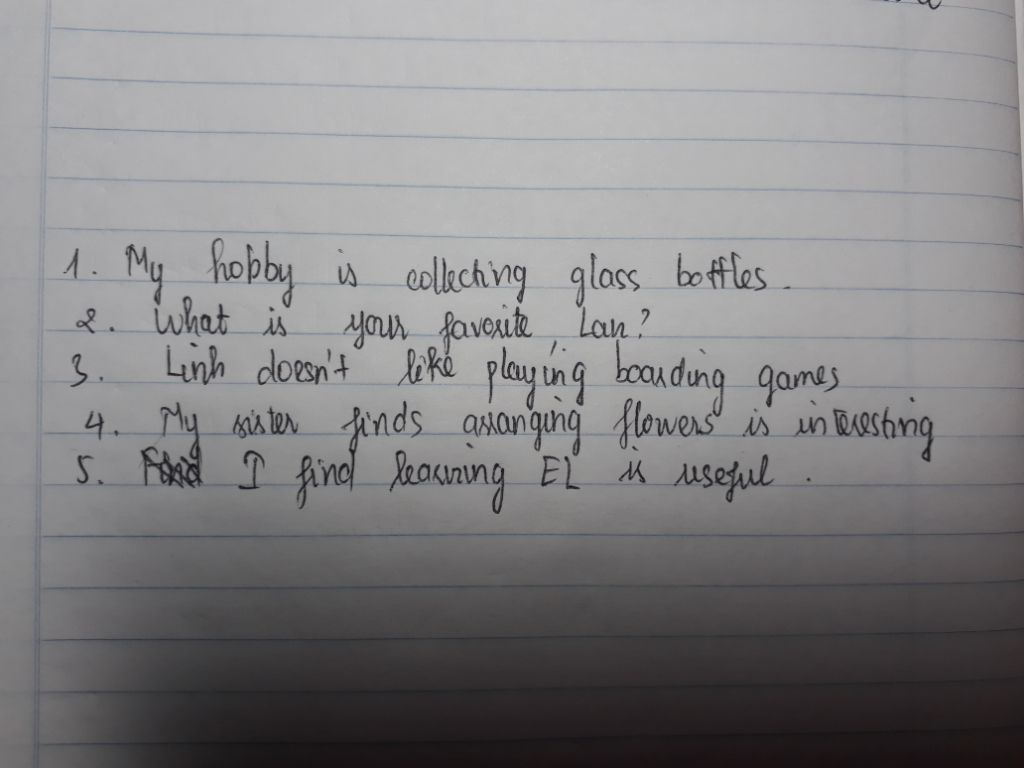 1. My hobby is collecting glass bottles.
2. What is your favorite, Lan?
3. Linh doesn't like playing boarding games
4. My sister finds arranging flowers is interesting
5. I find learning EL is useful.